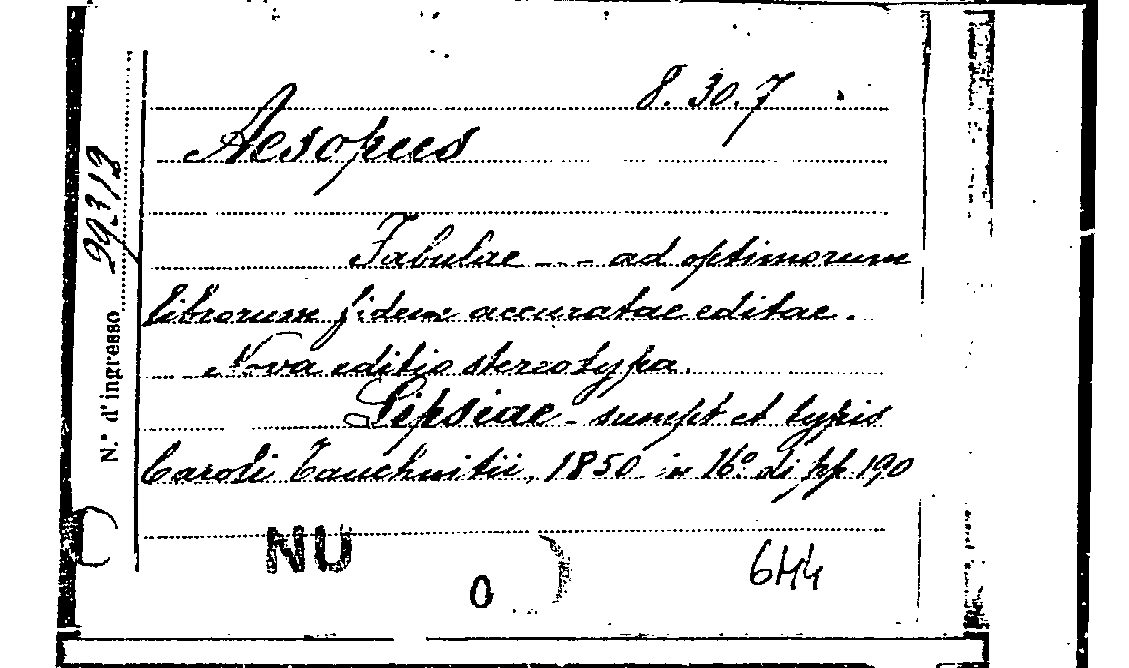 8. 30. 7
Aesopus
Fabulae - - ad optimorum
librorum fidem accuratae editae.
Nova editio stereotypa.
Lipsiae - sumpt et typis
Caroli Tauchnitii, 1850 in 16º di pp. 190
N.º d'ingresso 99319
NU
0